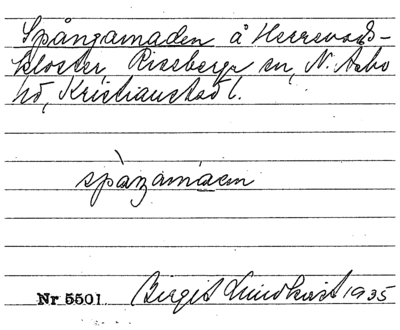 Spångamaden å Herrevads-
kloster, Riseberga sn, N. Åsbo
hd, Kristianstad l.
spàŋamáen
Nr 5501. Birgit Lundkvist 1935